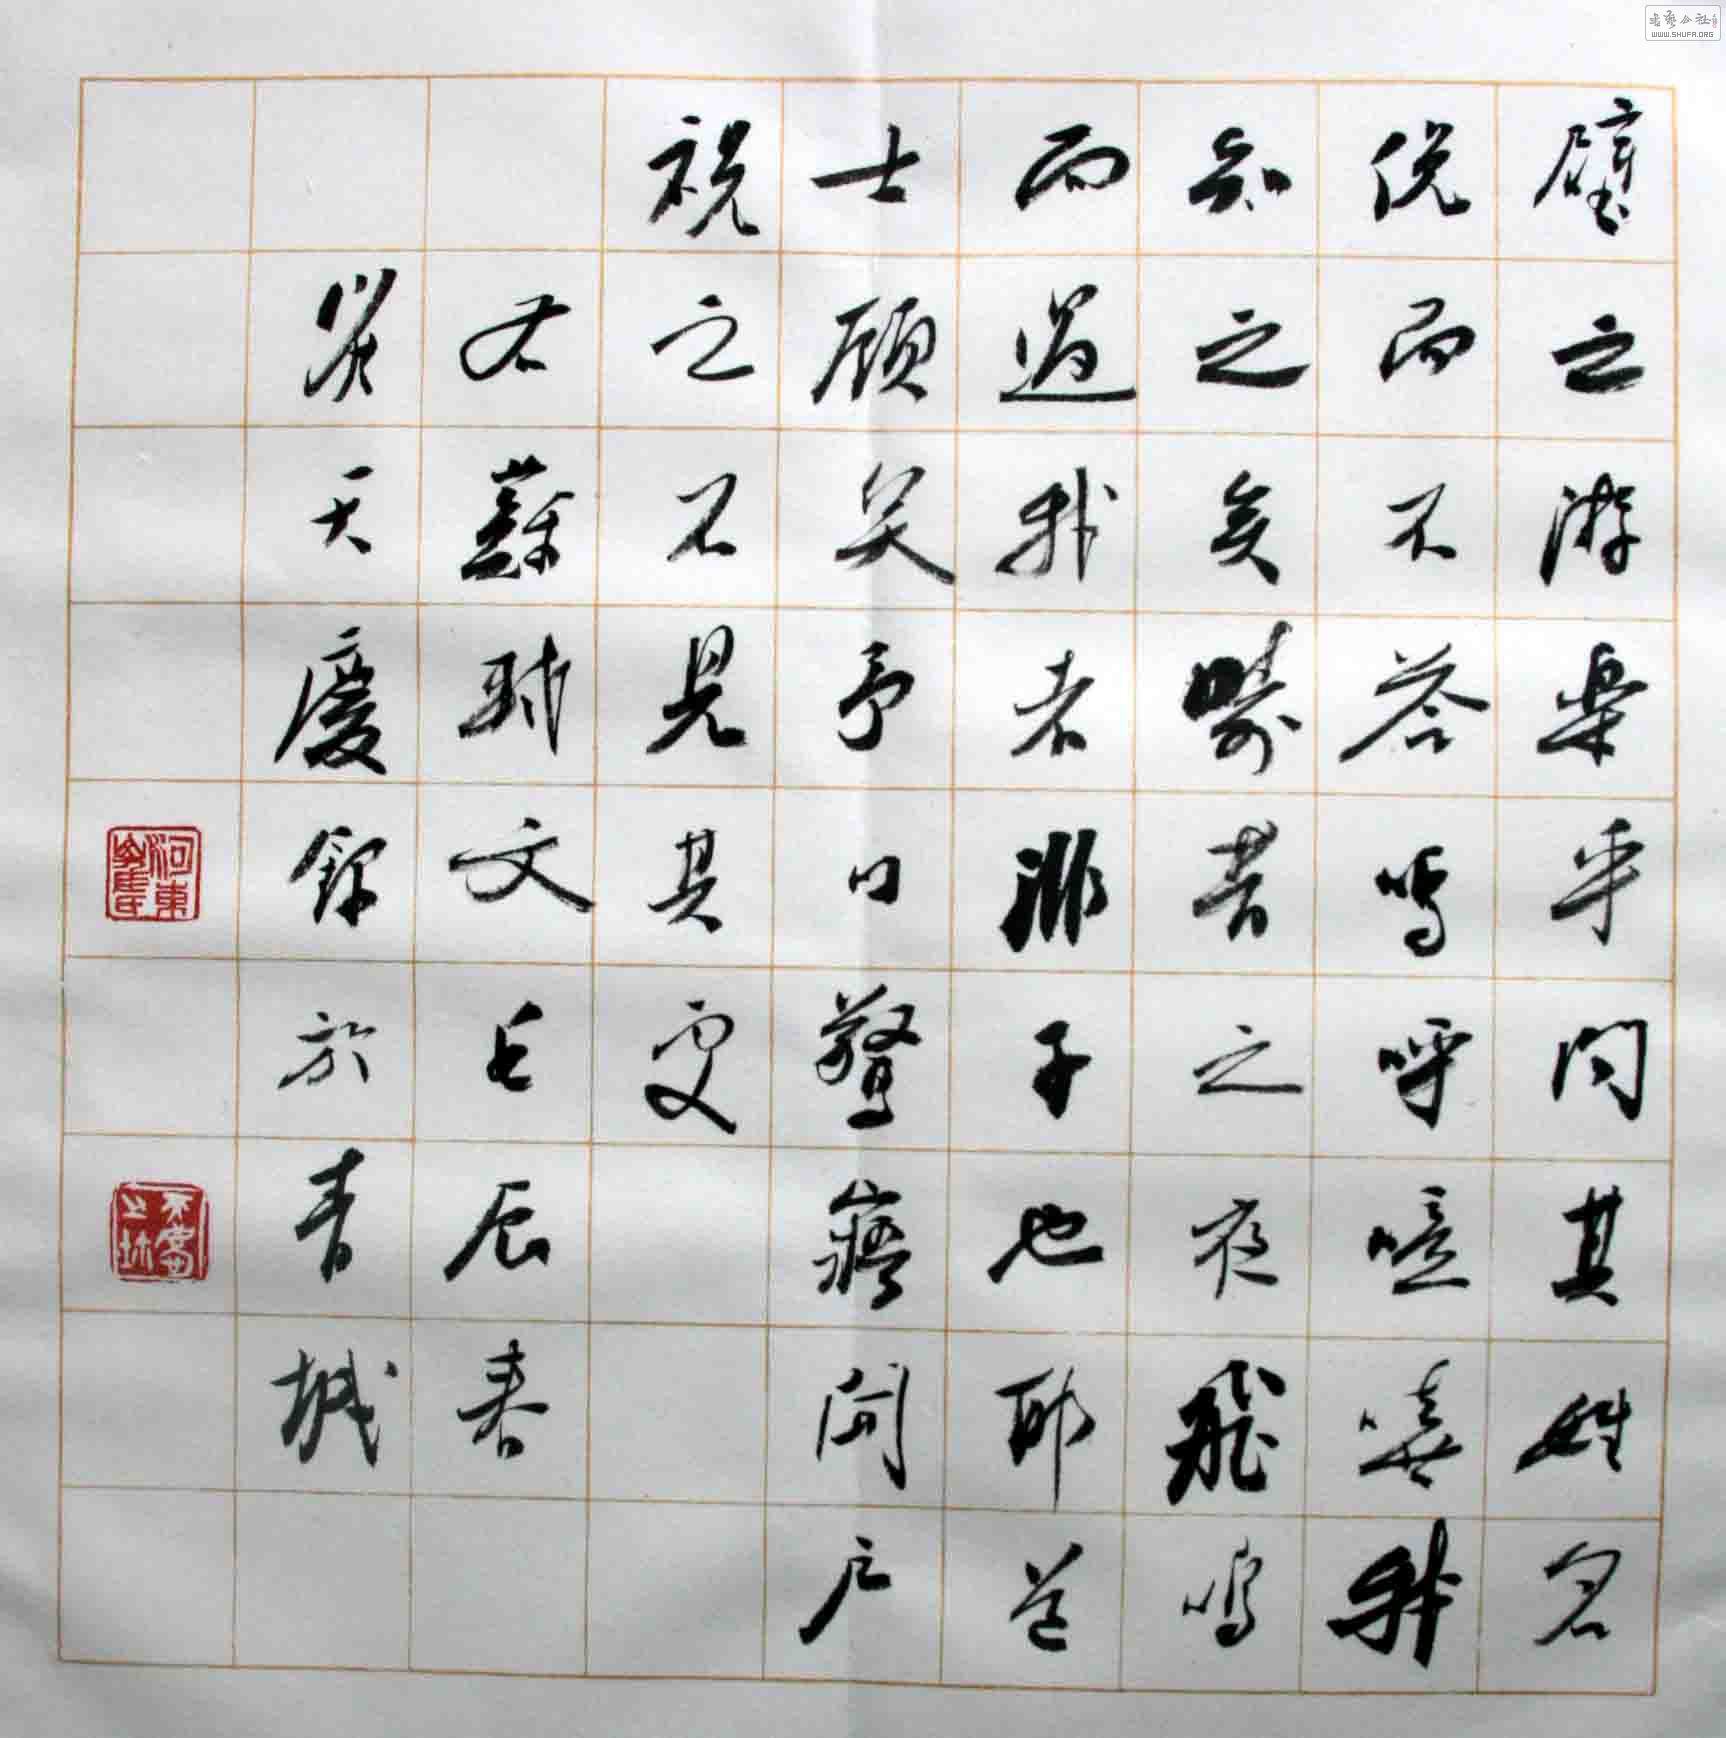 壁之游樂乎問其姓名
俛而不答嗚呼噫嘻我
知之矣疇昔之夜飛鳴
而過我者非子也耶道
士顧笑予口驚寤開户
視之不見其處
右蘇軾文壬辰春
崔天慶録於青城
河東崔氏
天慶之鉨
書藝公社
WWW.SHUFA.ORG